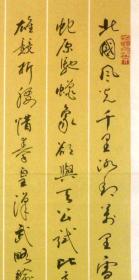 北國风光千里冰封萬里雪
蛇原馳蠟象欲與天公試比
雄競折腰惜秦皇漢武略輸